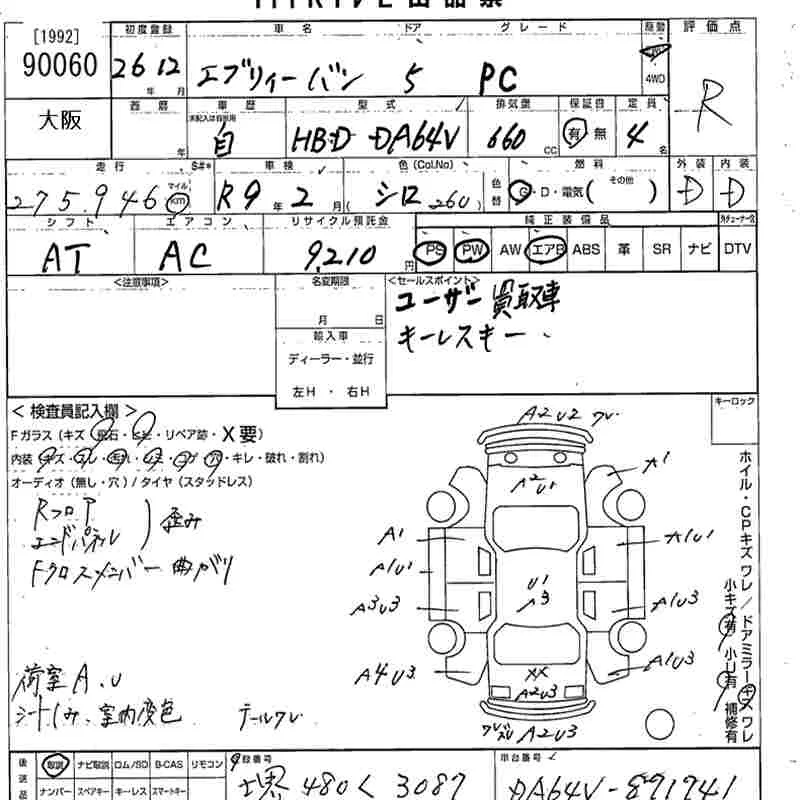 [1992] 初度登録 車名 ドア グレード 駆動 評価点
90060 26 年 12 月 エブリィーバン 5 PC 4WD R
大阪 西暦 年 車歴 未記入は自家用 自 型式 HBD-DA64V 排気量 660 CC 保証書 有 無 定員 4 名
走行 S#* 車検 色 (Col.No) 色替 燃料 外装 内装
275,946 マイル km R9 年 2 月 シロ (260) G・D・電気 ( その他 ) D D
シフト エアコン リサイクル預託金 純正装備品
AT AC 9,210 円 PS PW AW エアB ABS 革 SR ナビ DTV
<注意事項> 名変期限 <セールスポイント>
月 日 ユーザー買取車
輸入車 キーレスキー
ディーラー・並行
左H ・ 右H
<検査員記入欄> キーロック
Fガラス (キズ・飛石・ヒビ・リペア跡・X要)
内装 (キズ・スレ・汚れ・シミ・コゲ・穴・キレ・破れ・割れ)
オーディオ (無し・穴) / タイヤ (スタッドレス)
Rフロア
エンドパネル
歪み
Fクロスメンバー 曲がり
A2U2 ワレ
A2U1
A1
A1
A1U1
A1U1
U1
A3
A3U3
A1U3
A4U3
A1U3
XX
A2U3
A2U3
ホイル・CPキズワレ/ドアミラーキズワレ
小キズ有 小U有 補修有
荷室A.U
シートしみ、室内変色 テールワレ
後送品 取説 ナビ取説 ロム/SD B-CAS リモコン 登録番号 車台番号
ナンバー スペアキー キーレス スマートキー 堺 480 く 3087 DA64V-891741